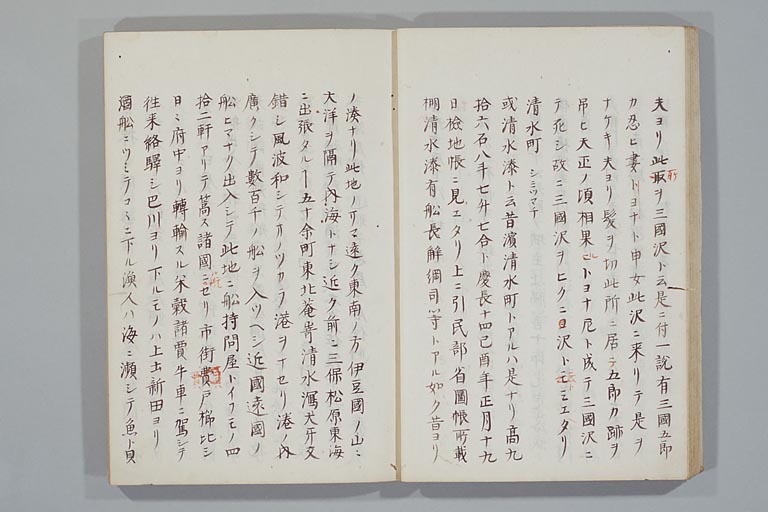 夫ヨリ此取ヲ三國沢ト云是ニ付一説有三國五郎
カ忍ヒ妻トヨナト申女此沢ニ来リテ是ヲ
ナケキ夫ヨリ髪ヲ切此所ニ居テ五郎カ跡ヲ
吊ヒ天正ノ頃相果トヨナ尼ト成テ三國沢ニ
テ死シ故ニ三國沢ヲヒクニ沢トモミエタリ
清水町 シミツマチ
或清水湊ト云昔濱清水町トアルハ是ナリ高九
拾六石八斗七升七合ト慶長十四己酉年正月十九
日検地帳ニ見エタリ上ニ引民部省圖帳所載
棚清水湊有船長解綱司等トアル如ク昔ヨリ
ノ湊ナリ此地ノサマ遠ク東南ノ方伊豆國ノ山ニ
大洋ヲ隔テ内海トナシ近ク前ニ三保松原東海
ニ出張タル五十余町東北菴嵜清水濱犬牙交
錯シ風波和シテオノツカラ港ヲナセリ港ノ内
廣クシテ數百千ノ船ヲ入ツヘシ近國遠國ノ
船ヒマナク出入シテ此地ニ船持問屋トイフモノ四
拾二軒アリテ篙ス諸國ニセリ市街費戸櫛比シ
日ニ府中ヨリ轉輸スル米穀諸賈牛車ニ駕シテ
往来絡驛シ巴川ヨリ下ルモノハ上土新田ヨリ
酒船ニツミテコヽニ下ル漁人ハ海ニ瀕シテ魚ト貝